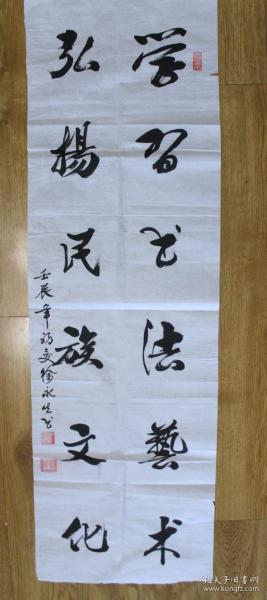 学习书法艺术
弘揚民族文化
壬辰年
徐永生书
孔夫子旧书网